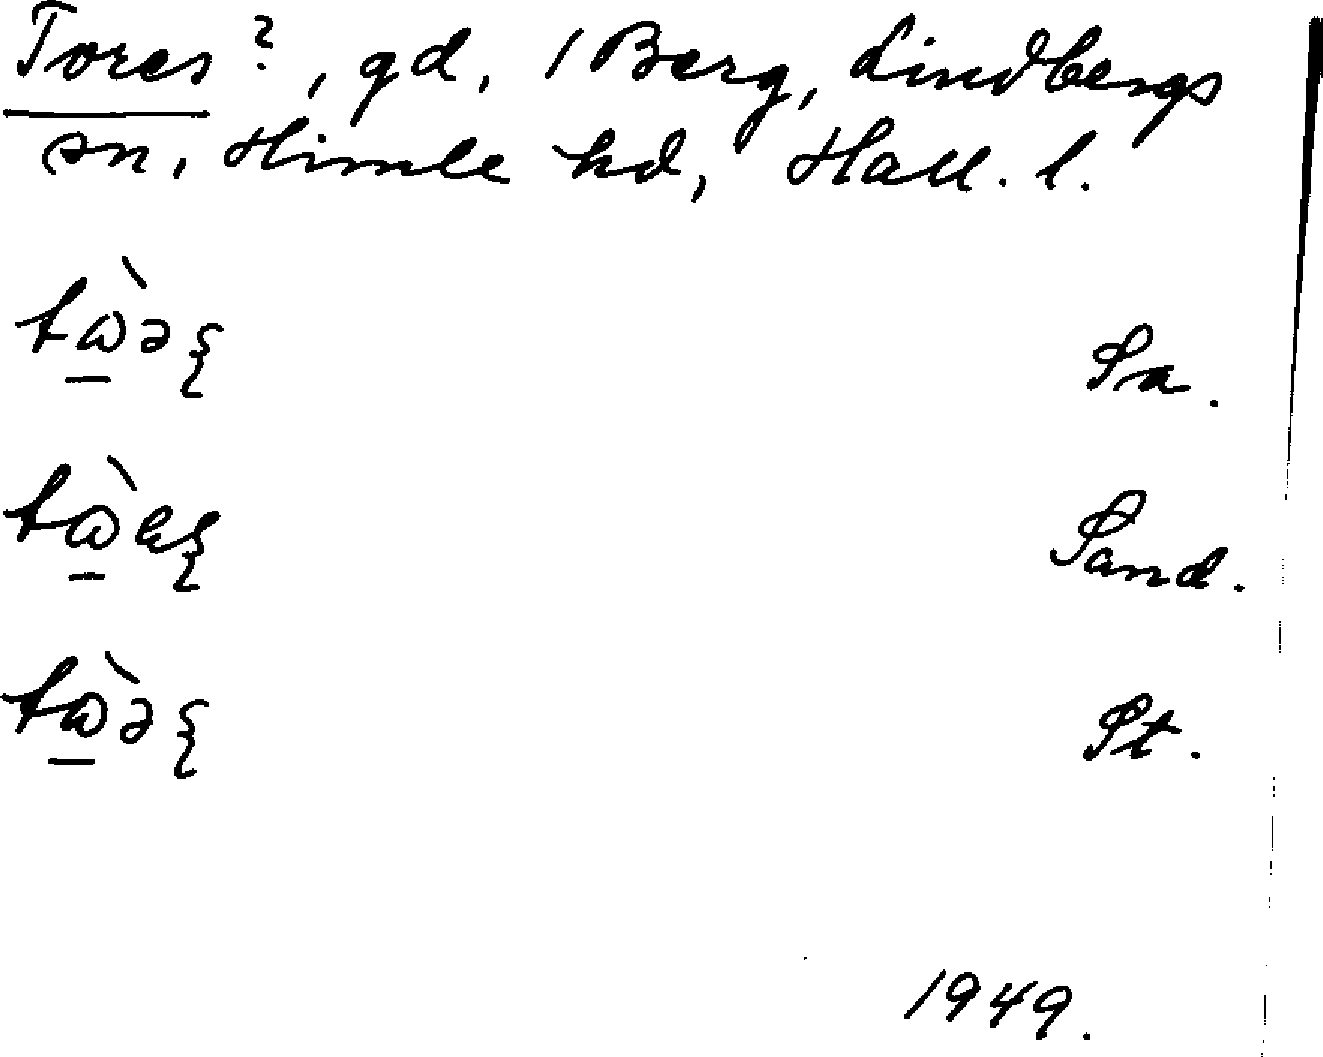 Tores?, gd, 1 Berg, Lindbergs
sn, Himle hd, Hall. l.
Sa.
Sand.
St.
1949.